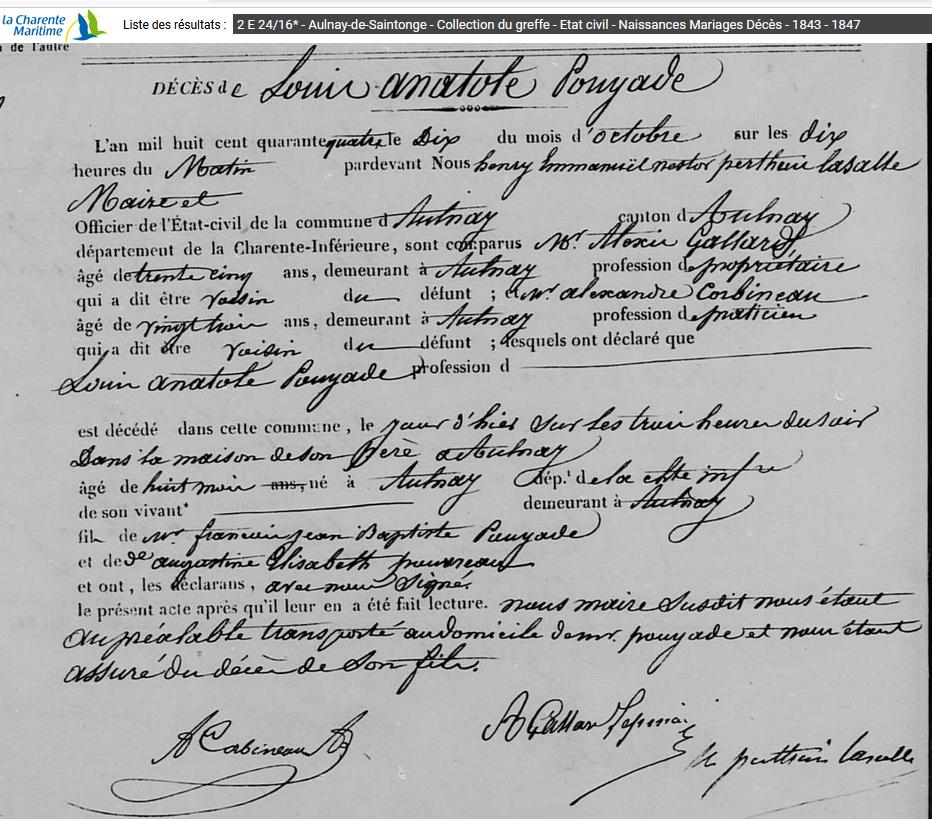 la Charente
Maritime
Liste des résultats : 2 E 24/16* - Aulnay-de-Saintonge - Collection du greffe - Etat civil - Naissances Mariages Décès - 1843 - 1847
n de l'autre
DÉCÈS de Louis anatole Pouyade
L'an mil huit cent quarante quatre le Dix du mois d'octobre sur les dix
heures du Matin pardevant Nous henry Emmanuël nestor perthuis lasalle
Maire et
Officier de l'État-civil de la commune d'Aulnay canton d'Aulnay
département de la Charente-Inférieure, sont comparus Mr. Alexis Gallard,
âgé de trente cinq ans, demeurant à Aulnay profession de propriétaire
qui a dit être voisin du défunt ; et Mr alexandre Corbineau
âgé de vingt trois ans, demeurant à Aulnay profession de praticien
qui a dit être voisin du défunt ; lesquels ont déclaré que
Louis anatole Pouyade profession d
est décédé dans cette commune, le jour d'hier sur les trois heures du soir
Dans la maison de son Père a Aulnay
âgé de huit mois ans, né à Aulnay dép.t de la chte infre
de son vivant* demeurant à Aulnay
fils de Mr francois jean Baptiste Pouyade
et de de augustine Elisabeth
et ont, les déclarans, avec nous signé.
le présent acte après qu'il leur en a été fait lecture. nous maire susdit nous étant
au préalable transporté au domicile de mr. pouyade et nous étant
assuré du décès de son fils.
A Corbineau A Gallard
perthuis lasalle